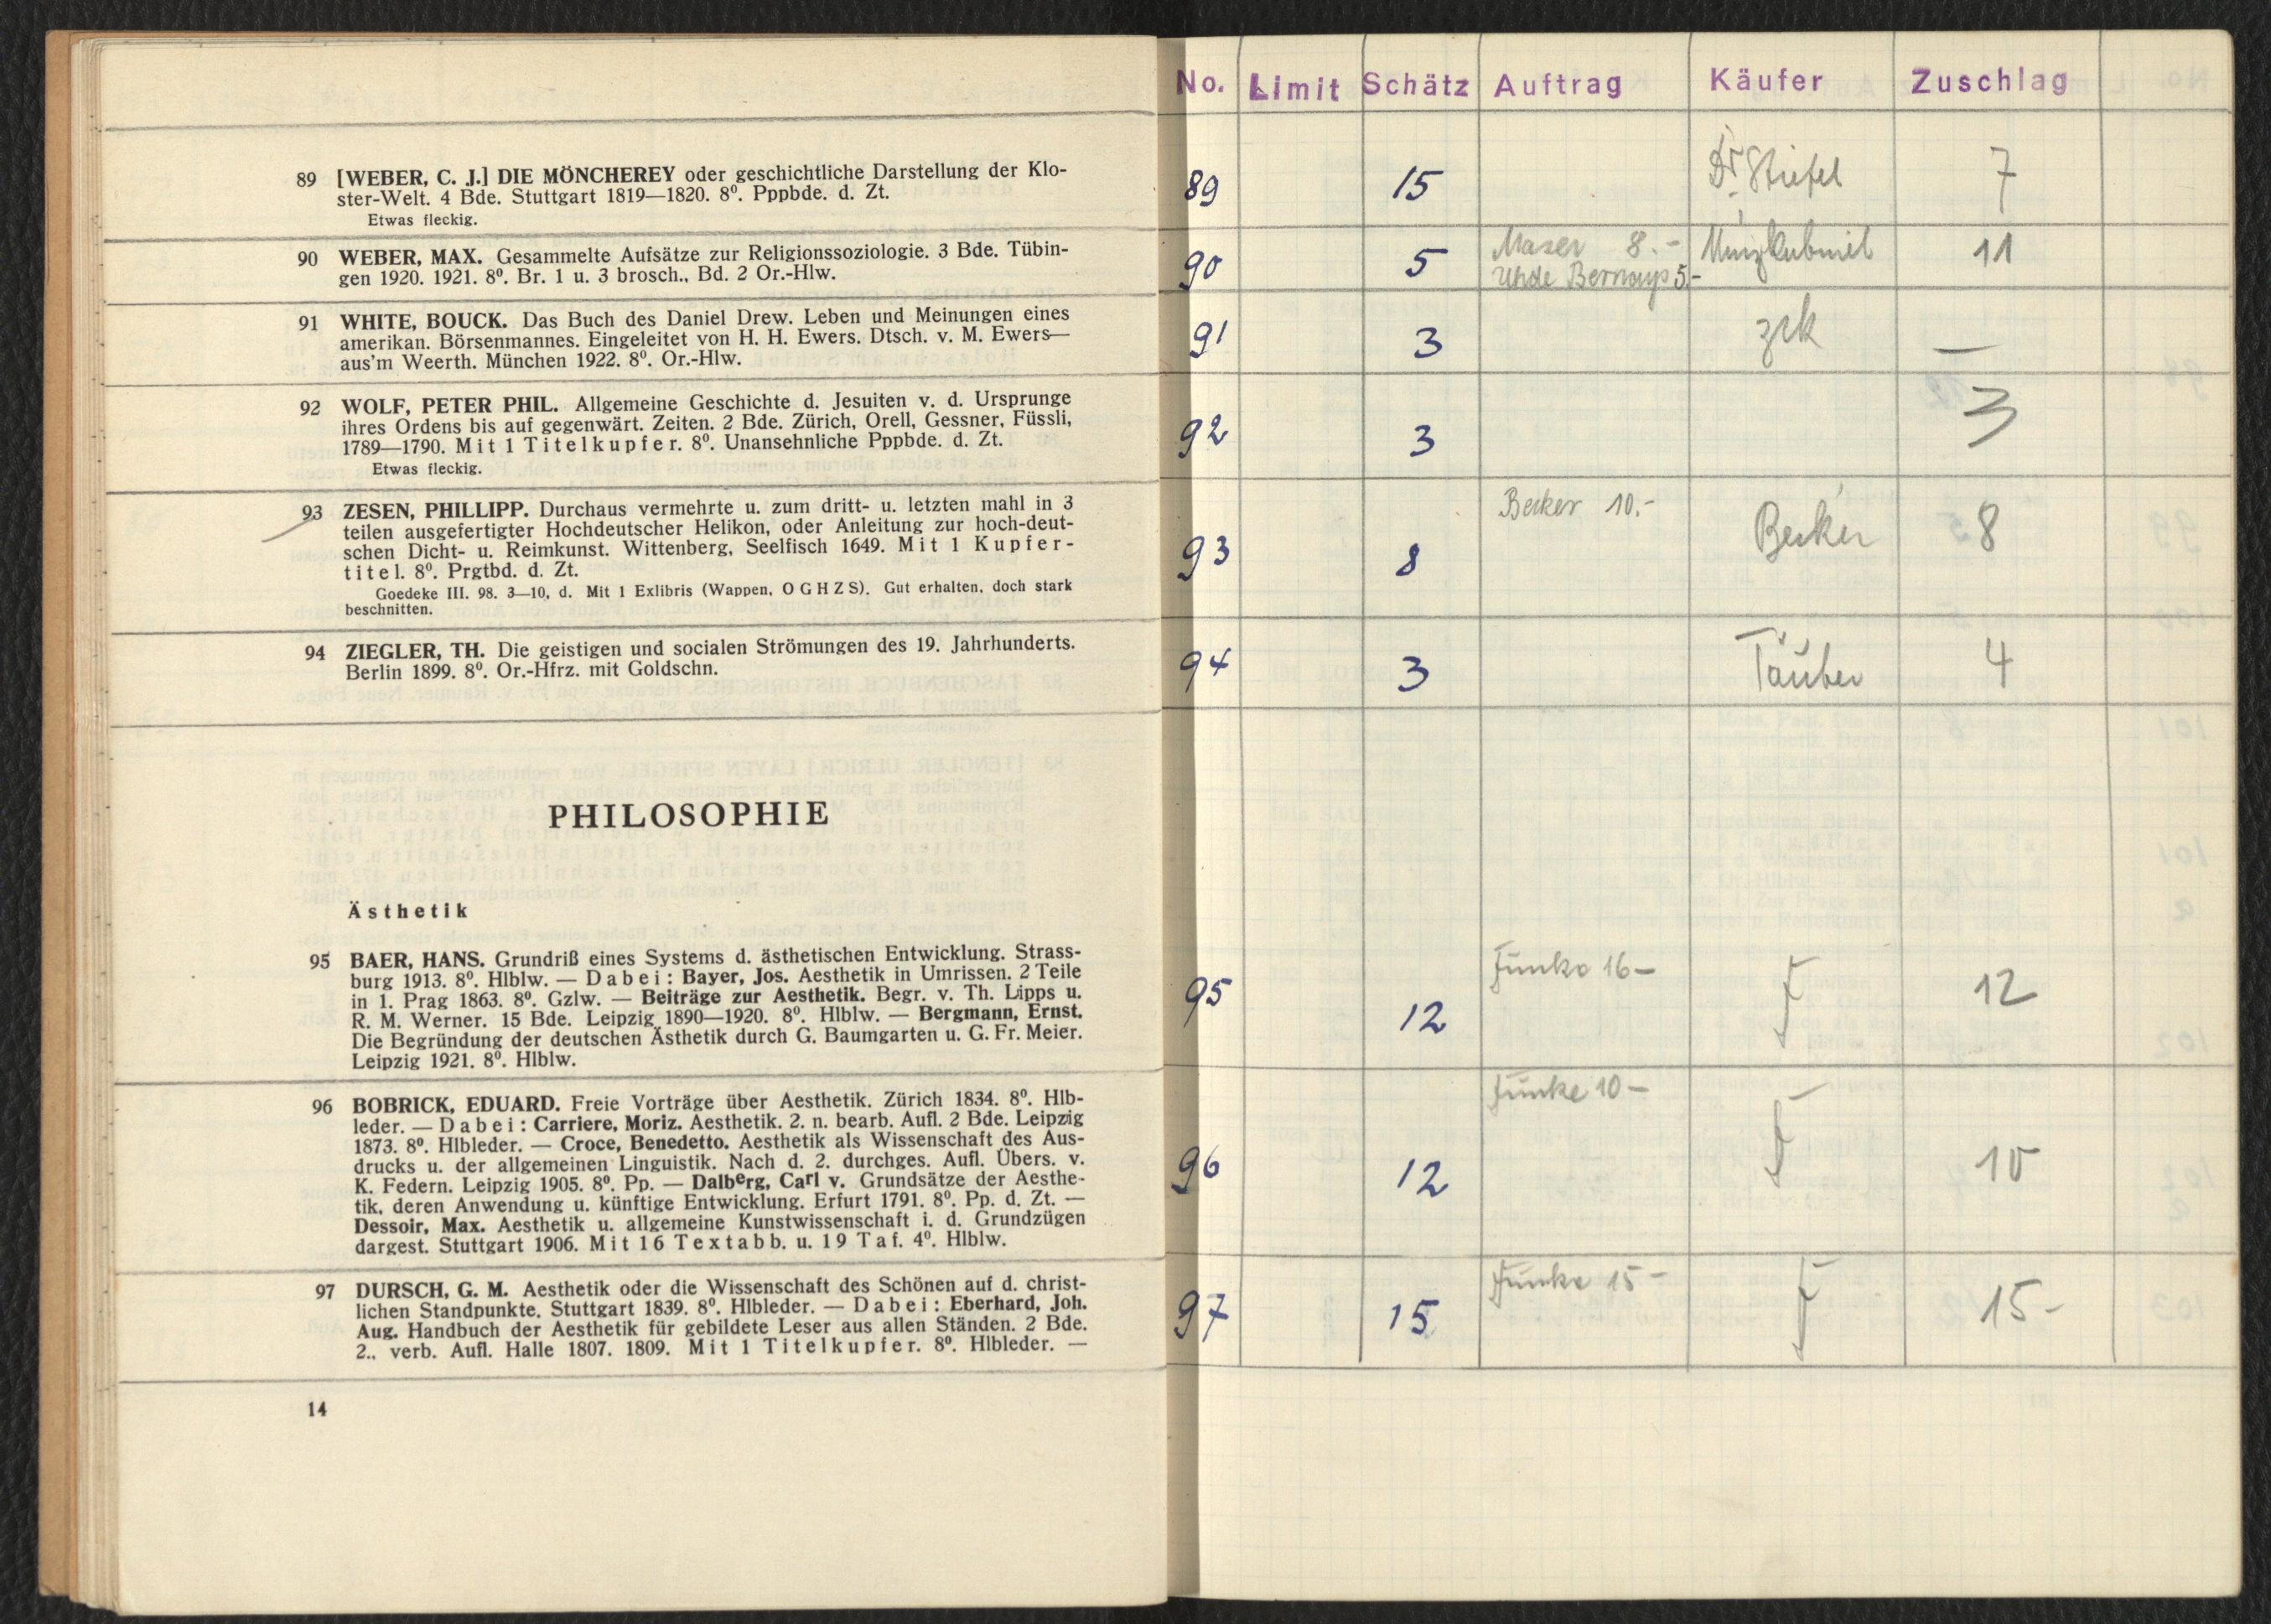 89 [WEBER, C. J.] DIE MÖNCHEREY oder geschichtliche Darstellung der Klo-
ster-Welt. 4 Bde. Stuttgart 1819—1820. 8⁰. Pppbde. d. Zt.
Etwas fleckig.
90 WEBER, MAX. Gesammelte Aufsätze zur Religionssoziologie. 3 Bde. Tübin-
gen 1920. 1921. 8⁰. Br. 1 u. 3 brosch., Bd. 2 Or.-Hlw.
91 WHITE, BOUCK. Das Buch des Daniel Drew. Leben und Meinungen eines
amerikan. Börsenmannes. Eingeleitet von H. H. Ewers. Dtsch. v. M. Ewers—
aus'm Weerth. München 1922. 8⁰. Or.-Hlw.
92 WOLF, PETER PHIL. Allgemeine Geschichte d. Jesuiten v. d. Ursprunge
ihres Ordens bis auf gegenwärt. Zeiten. 2 Bde. Zürich, Orell, Gessner, Füssli,
1789—1790. Mit 1 Titelkupfer. 8⁰. Unansehnliche Pppbde. d. Zt.
Etwas fleckig.
93 ZESEN, PHILLIPP. Durchaus vermehrte u. zum dritt- u. letzten mahl in 3
teilen ausgefertigter Hochdeutscher Helikon, oder Anleitung zur hoch-deut-
schen Dicht- u. Reimkunst. Wittenberg, Seelfisch 1649. Mit 1 Kupfer-
titel. 8⁰. Prgtbd. d. Zt.
Goedeke III. 98. 3—10, d. Mit 1 Exlibris (Wappen, O G H Z S). Gut erhalten, doch stark
beschnitten.
94 ZIEGLER, TH. Die geistigen und socialen Strömungen des 19. Jahrhunderts.
Berlin 1899. 8⁰. Or.-Hfrz. mit Goldschn.
PHILOSOPHIE
Ästhetik
95 BAER, HANS. Grundriß eines Systems d. ästhetischen Entwicklung. Strass-
burg 1913. 8⁰. Hlblw. — Dabei: Bayer, Jos. Aesthetik in Umrissen. 2 Teile
in 1. Prag 1863. 8⁰. Gzlw. — Beiträge zur Aesthetik. Begr. v. Th. Lipps u.
R. M. Werner. 15 Bde. Leipzig 1890—1920. 8⁰. Hlblw. — Bergmann, Ernst.
Die Begründung der deutschen Ästhetik durch G. Baumgarten u. G. Fr. Meier.
Leipzig 1921. 8⁰. Hlblw.
96 BOBRICK, EDUARD. Freie Vorträge über Aesthetik. Zürich 1834. 8⁰. Hlb-
leder. — Dabei: Carriere, Moriz. Aesthetik. 2. n. bearb. Aufl. 2 Bde. Leipzig
1873. 8⁰. Hlbleder. — Croce, Benedetto. Aesthetik als Wissenschaft des Aus-
drucks u. der allgemeinen Linguistik. Nach d. 2. durchges. Aufl. Übers. v.
K. Federn. Leipzig 1905. 8⁰. Pp. — Dalberg, Carl v. Grundsätze der Aesthe-
tik, deren Anwendung u. künftige Entwicklung. Erfurt 1791. 8⁰. Pp. d. Zt. —
Dessoir, Max. Aesthetik u. allgemeine Kunstwissenschaft i. d. Grundzügen
dargest. Stuttgart 1906. Mit 16 Textabb. u. 19 Taf. 4⁰. Hlblw.
97 DURSCH, G. M. Aesthetik oder die Wissenschaft des Schönen auf d. christ-
lichen Standpunkte. Stuttgart 1839. 8⁰. Hlbleder. — Dabei: Eberhard, Joh.
Aug. Handbuch der Aesthetik für gebildete Leser aus allen Ständen. 2 Bde.
2., verb. Aufl. Halle 1807. 1809. Mit 1 Titelkupfer. 8⁰. Hlbleder. —
14
No. Limit Schätz Auftrag Käufer Zuschlag
89 15 Dr. Stiefel 7
90 5 Maser 8.- 11
Uhde Bernays 5.-
91 3 zrk —
92 3 3
93 8 Becker 10.- Becker 8
94 3 Täuber 4
95 12 Funke 16- F 12
96 12 Funke 10- F 10
97 15 Funke 15- F 15-